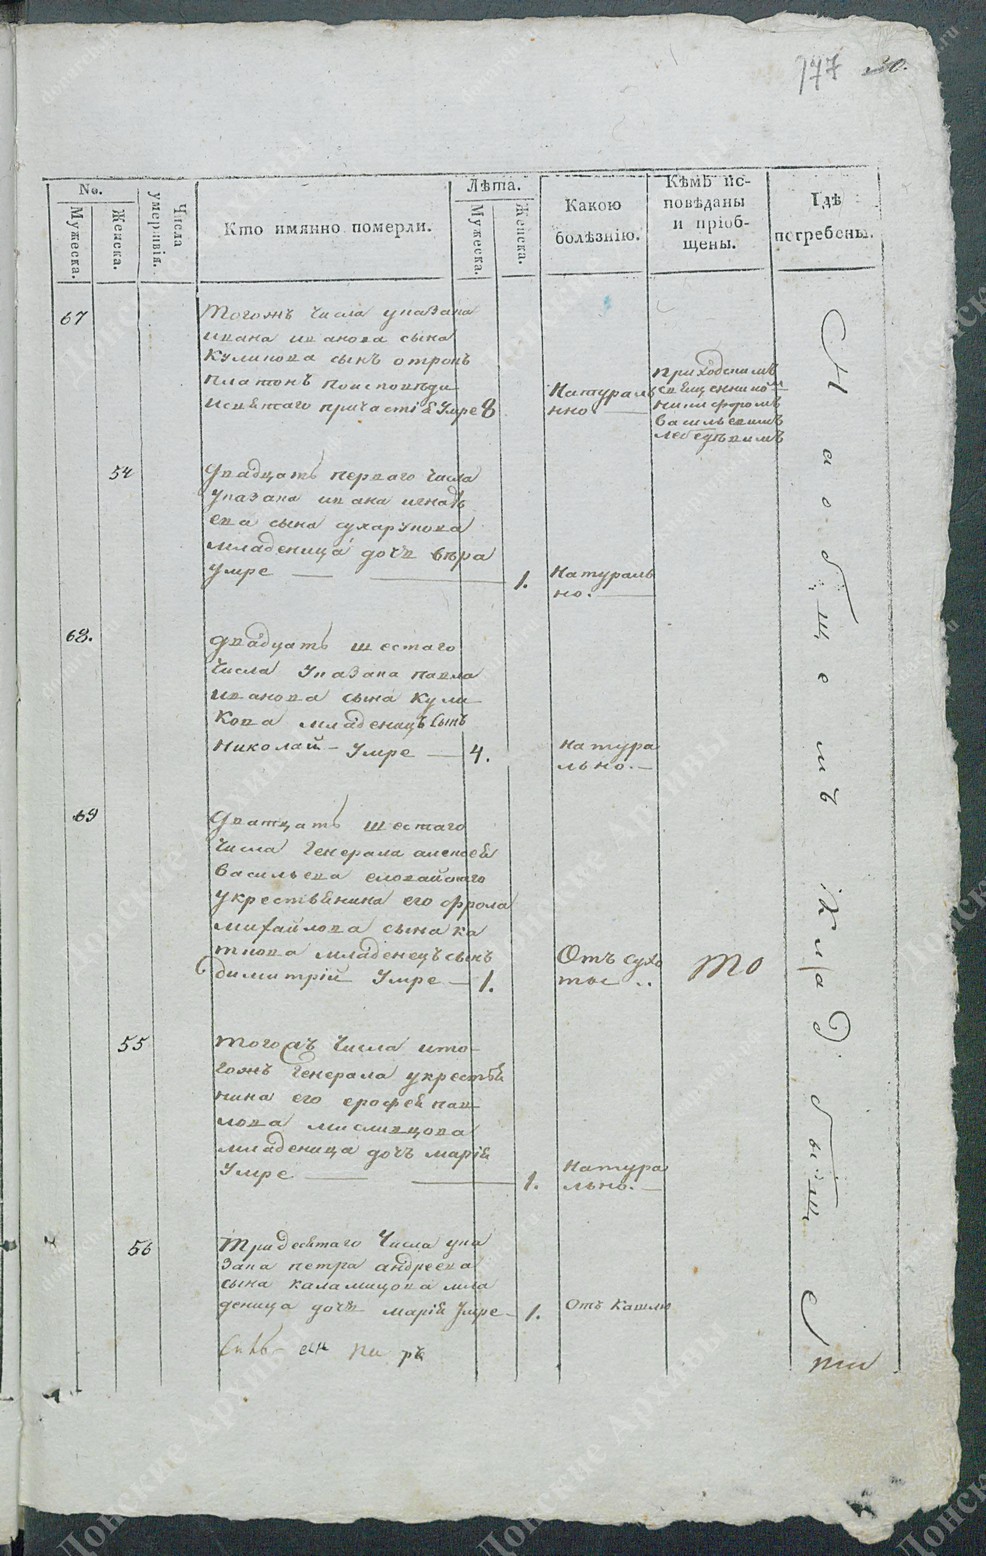 177 30.
No.
Мужеска.
Женска.
Числа умершвія.
Кто имянно померли.
Лѣта.
Мужеска.
Женска.
Какою
болѣзнію.
Кѣмъ ис-
повѣданы
и пріоб-
щены.
Гдѣ
погребены.
67
тогожъ числа указана
ивана иванова сына
куликова сынъ отрокъ
платонъ поисповѣди
исвятаго причастія умре 8
Натураль
нно
приходскимъ
священником
никифоромъ
васильевимъ
лебедѣвимъ
54
двадцать перваго числа
указана ивана игнатъ
ева сына сухарукова
младеница дочь вѣра
умре 1.
натураль
но.
68.
двадцать шестаго
числа указана павла
иванова сына кули
кова младеницъ сынъ
николай умре 4.
натура
льно.
69
дватцать шестаго
числа генерала алексея
васильева еловайскаго
укрестьянина его фрола
михайлова сына ка
ткова младенецъ сынъ
димитрій умре 1.
Отъ сухо
ты
то
55
тогожъ числа ито
гожъ генерала укрестья
нина его ерофея пав
лова мисливцова
младеница дочь марія
умре 1.
натура
льно.
56
тридесятаго числа ука
зана петра андреева
сына каламицова мла
деница дочь марія умре 1.
отъ кашлю
На общемъ кладбище